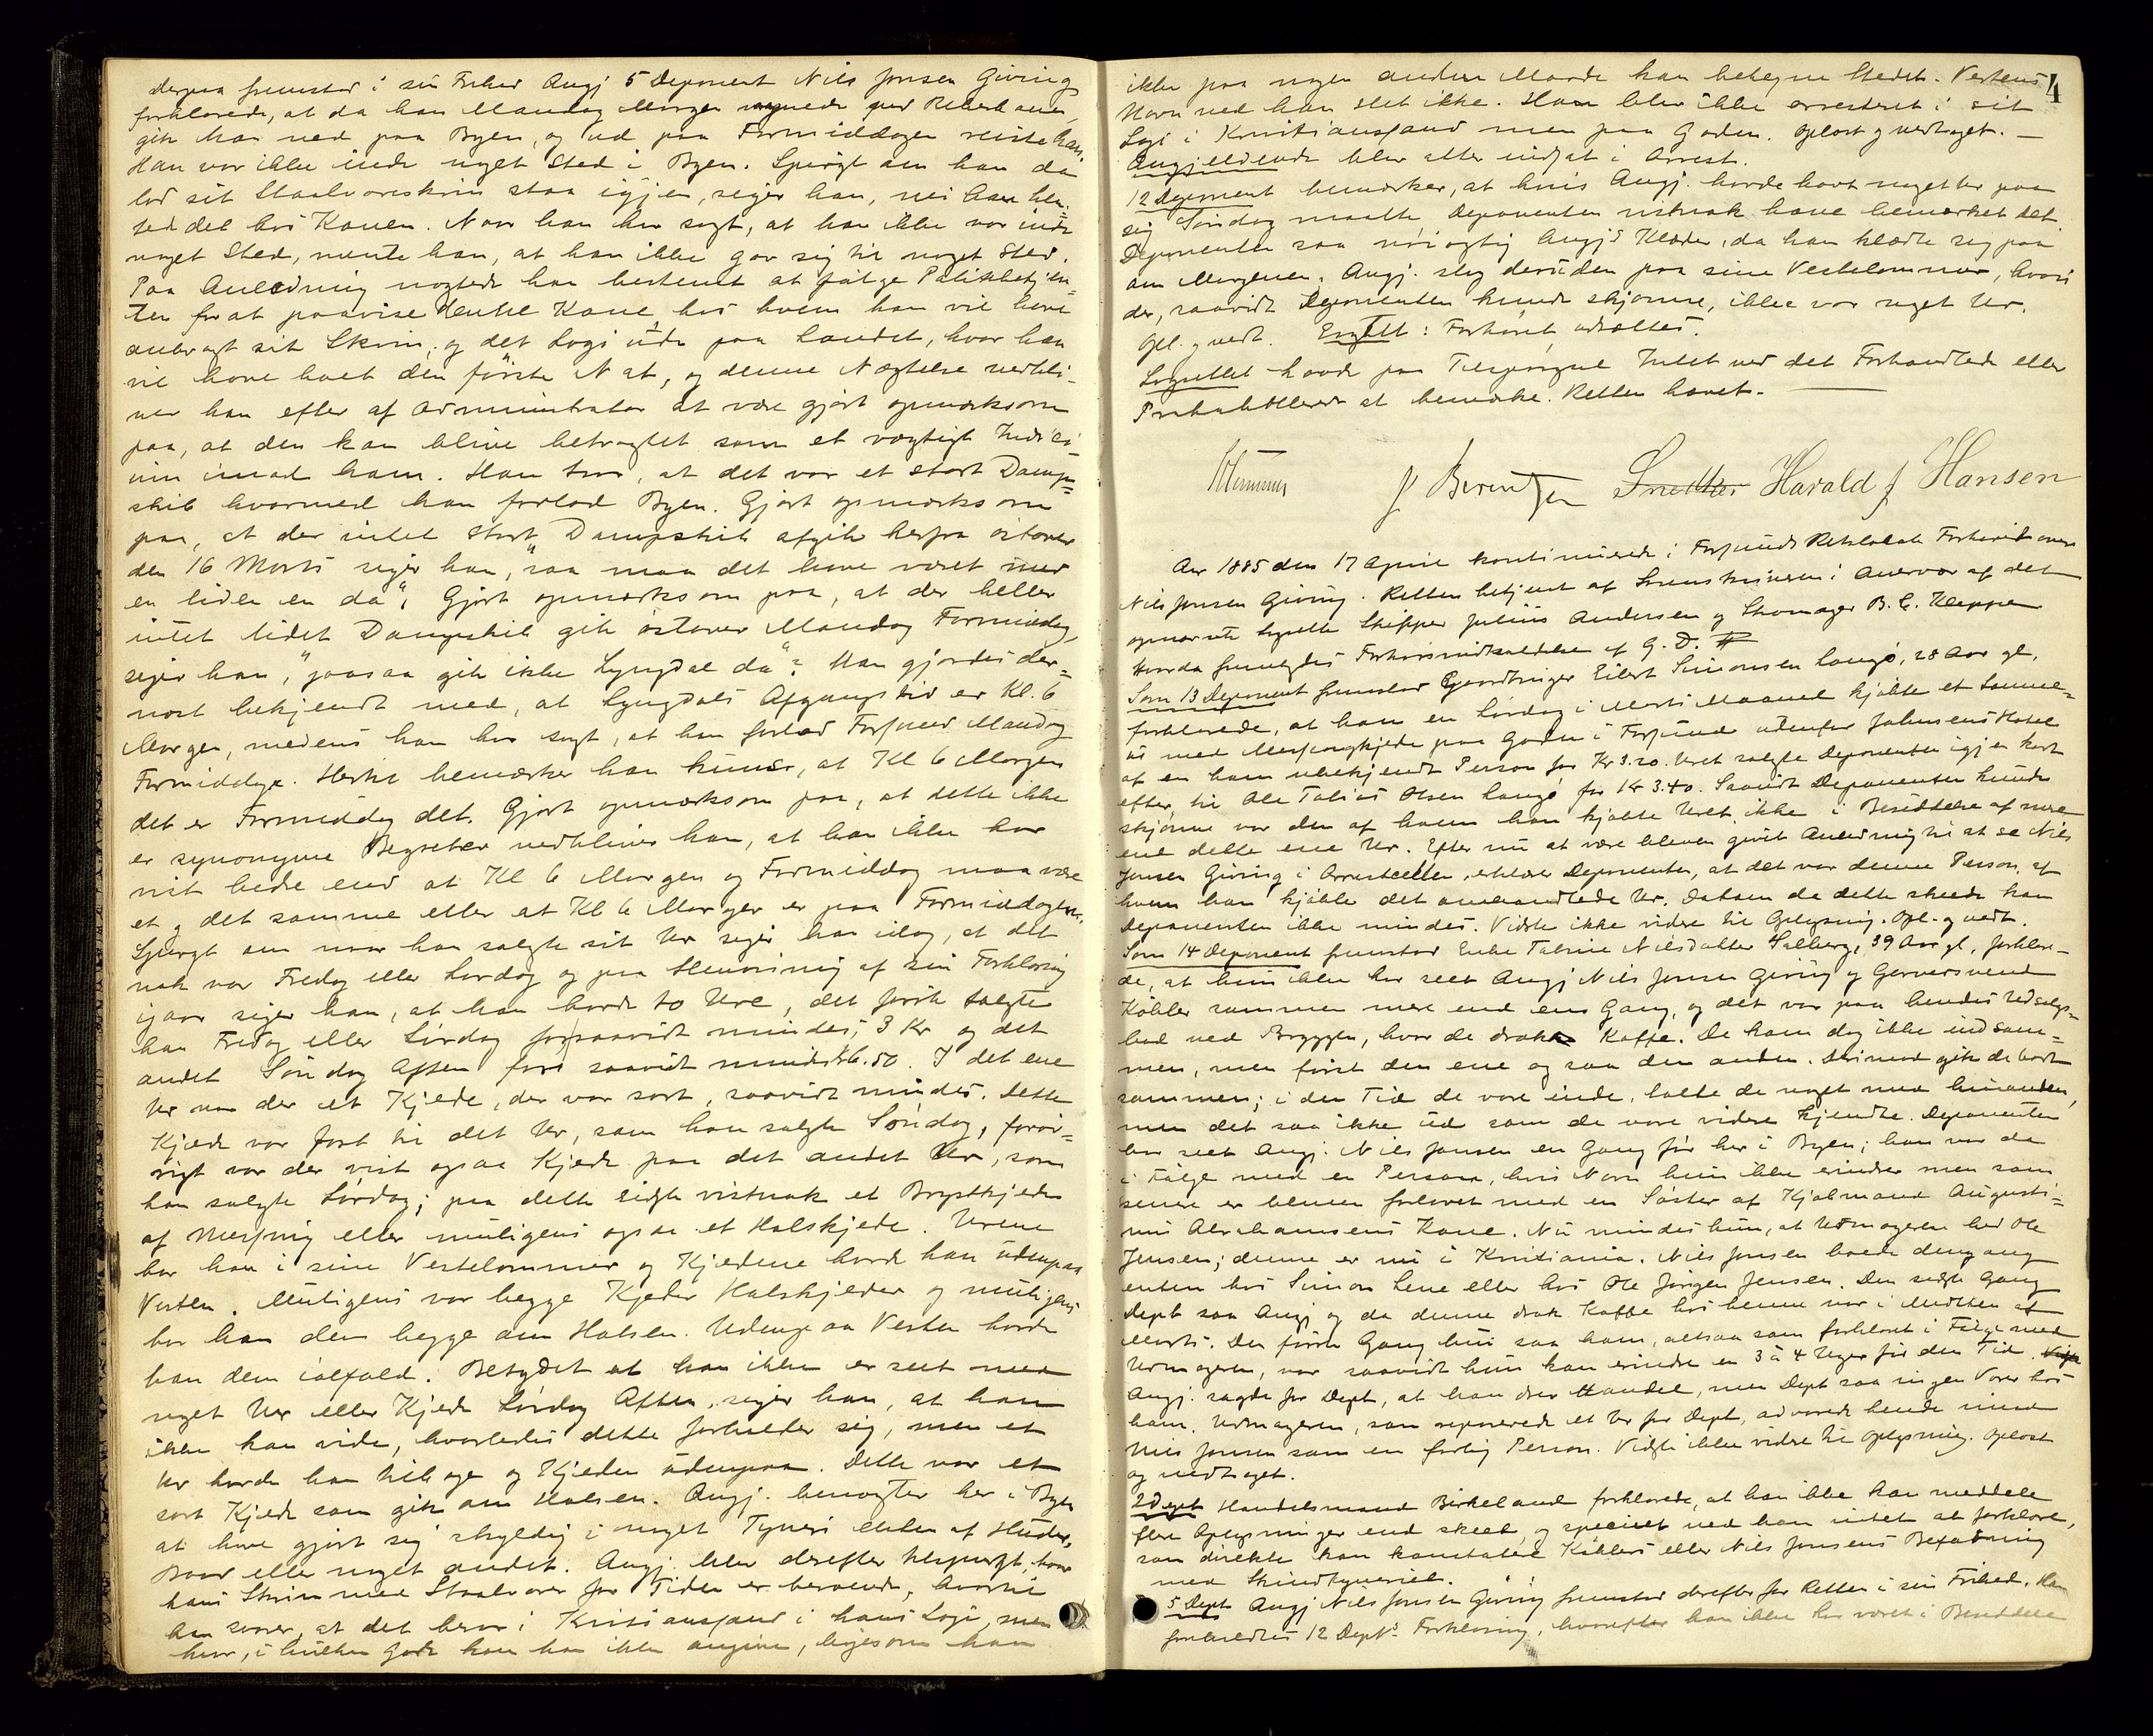 derpaa fremstod i sin Frihed Angj 5 Deponent Nils Jonsen Giving
forklarede, at da han Mandag Morgen vaagnede
gik han ned paa Byen, og ud paa Formiddagen reiste han.
Han var ikke inde noget Sted i Byen. Spurgt om han da
lod sit Staalvareskrin staa igjen, siger han, nei han hen-
tede det hos Konen. Naar han har sagt, at han ikke var inde
noget Sted, mente han, at han ikke gav sig til noget Sted.
Paa Anledning nægtede han bestemt at følge Politibetjen-
ten for at paavise denne Kone hos hvem han vil have
anbragt sit Skrin, og det Logi ude paa Landet, hvor han
vil have havt den første Nat, og denne Nægtelse vedbli-
ver han efter af Administrator at være gjort opmærksom
paa, at den kan blive betragtet som et vægtigt Indici-
um imod ham. Han tror, at det var et stort Damp-
skib hvormed han forlod Byen. Gjort opmærksom
paa, at der intet stort Dampskib afgik herfra østover
den 16 Marts siger han, "saa maa det have været med
en liden en da", Gjort opmærksom paa, at der heller
intet lidet Dampskib gik østover Mandag Formiddag,
siger han, "jasaa gik ikke Lyngdal da"? Han gjordes der-
næst bekjendt med, at Lyngdals Afgangstid er Kl. 6
Morgen, medens han har sagt, at han forlod Farsund Mandag
Formiddag. Hertil bemærker han kuns, at Kl 6 Morgen
det er Formiddag det. Gjort opmærksom paa, at dette ikke
er synonyme Begreber vedbliver han, at han ikke har
vidst bedre end at Kl 6 Morgen og Formiddag maa være
et og det samme eller at Kl 6 Morgen er paa Formiddagen.
Spurgt om naar han solgte sit Ur siger han idag, at det
nok var Fredag eller Lørdag og paa Henvisning af sin Forklaring
igaar siger han, at han havde to Ure, det første solgte
han Fredag eller Lørdag for saavidt mindes, 3 Kr og det
andet Søndag Aften for saavidt mindes 6.50. I det ene
Ur var der et Kjede, der var sort, saavidt mindes. Dette
Kjede var fæst til det Ur, som han solgte Søndag, forøv-
rigt var der vist ogsaa Kjede paa det andet Ur, som
han solgte Lørdag; paa dette sidste vistnok et Brystkjede
af Messing eller muligens ogsaa et Halskjede. Urene
bar han i sine Vestelommer og Kjedene havde han udenpaa
Vesten. Muligens var begge Kjeder Halskjeder og muligens
bar han dem begge om Halsen. Udenpaa Vesten havde
han dem ialfald. Betydet at han ikke er seet med
noget Ur eller Kjede Lørdag Aften, siger han, at han
ikke kan vide, hvorledes dette forholder sig, men et
Ur havde han tilbage og Kjeden udenpaa. Dette var et
sort Kjede som gik om Halsen. Angj. benægter her i Byen
at have gjort sig skyldig i noget Tyveri enten af Huder,
Baad eller noget andet. Angj. blev derefter tilspurgt, hvor
hans Skrin med Staalvarer for Tiden er beroende, hvortil
han svarer, at det beror i Kristianssand i hans Logi, men
hvor, i hvilken Gade kan han ikke angive, ligesom han
ikke paa nogen anden Maade kan betegne Stedet. Vertens
4
Navn ved han slet ikke. Han blev ikke arresteret i sit
Logi i Kristianssand men paa Gaden. Oplæst og vedtaget. —
Angjeldende blev atter indsat i Arrest.
12 Deponent bemærker, at hvis Angj. havde havt noget Ur paa
sig Søndag maatte Deponenten vistnok have bemærket det.
Deponenten saa nøiagtig Angj's Klæder, da han klædte sig paa
om Morgenen. Angj. slog desuden paa sine Vestelommer, hvori
der, saavidt Deponenten kunde skjønne, ikke var noget Ur.
Opl. g vedt. Forhøret udsættes.
Lagrettet havde paa Tilspørgsel Intet ved det Forhandlede eller
Protokollerede at bemærke. Retten hævet.
J Berentzen Harald J Hansen
Aar 1885 den 17 April kontinuerede i Farsunds Retslokale Forhøret over
Nils Jonsen Giving. Retten betjent af Sorenskriveren i Overvær af det
opnævnte Lagrette Skipper Julius Andersen og Skomager B. C. Kleppe
Hvorda fremlagdes Forhørsindkaldelse af G. D.
Som 13 Deponent fremstod Gaardbruger Eilert Simonsen Langø, 28 Aar gl,
forklarede, at han en Lørdag i Marts Maaned kjøbte et Lomme-
ur med Messingkjede paa Gaden i Farsund udenfor Jahnsens Hotel
af en ham ubekjendt Person for Kr 3.20. Uret solgte Deponenten igjen kort
efter til Ole Tobias Olsen Langø for Kr 3.40. Saavidt Deponenten kunde
skjønne var den af hvem han kjøbte Uret ikke i Besiddelse af mere
end dette ene Ur. Efter nu at være bleven givet Anledning til at se Nils
Jonsen Giving i Arrestcellen, erklærer Deponenten, at det var denne Person, af
hvem han kjøbte det omhandlede Ur. Datoen da dette skede kan
Deponenten ikke mindes. Vidste ikke videre til Oplysning. Opl. g vedt.
Som 14 Deponent fremstod Enke Tabine Nilsdatter Salberg, 39 Aar gl, forklare-
de, at hun ikke har seet Angj Nils Jonsen Giving og Garversvend
Køhler sammen mere end en Gang, og det var paa hendes Udsalgs-
bod ved Bryggen, hvor de drak Kaffe. De kom dog ikke ind sam-
men, men først den ene og saa den anden. Derimod gik de bort
sammen; i den Tid de vare inde, talte de noget med hinanden,
men det saa ikke ud som de vare videre kjendte. Deponenten
har seet Angj. Nils Jonsen en Gang før her i Byen; han var da
i Følge med en Person, hvis Navn hun ikke erindrer men som
senere er bleven forlovet med en Søster af Kjøbmand Augusti-
nus Abrahamsens Kone. Nu mindes hun, at Urmageren hed Ole
Jensen; denne er nu i Kristiania. Nils Jonsen boede dengang
enten hos Simon Lene eller hos Ole Jørgen Jensen. Den sidste Gang
Dept saa Angj og da denne drak Kaffe hos hende var i Midten af
Marts. Den første Gang hun saa ham, altsaa som forklaret i Følge med
Urmageren, var saavidt hun kan erindre en 3 à 4 Uger før den Tid.
Angj. sagde for Dept, at han drev Handel, men Dept saa ingen Varer hos
ham. Urmageren, som reparerede et Ur for Dept, advarede hende imod
Nils Jonsen som en farlig Person. Vidste ikke videre til Oplysning. Oplæst
og vedtaget.
2 Dept Handelsmand Birkeland forklarede, at han ikke kan meddele
flere Oplysninger end skeet, og specielt ved han intet at forklare,
som direkte kan konstatere Køhlers eller Nils Jonsens Befatning
med Skindtyveriet.
5 Dept Angj Nils Jonsen Giving fremstod derefter for Retten i sin Frihed. Han
foreholdtes 12 Dept's Forklaring, hvorefter han ikke har været i Besiddelse